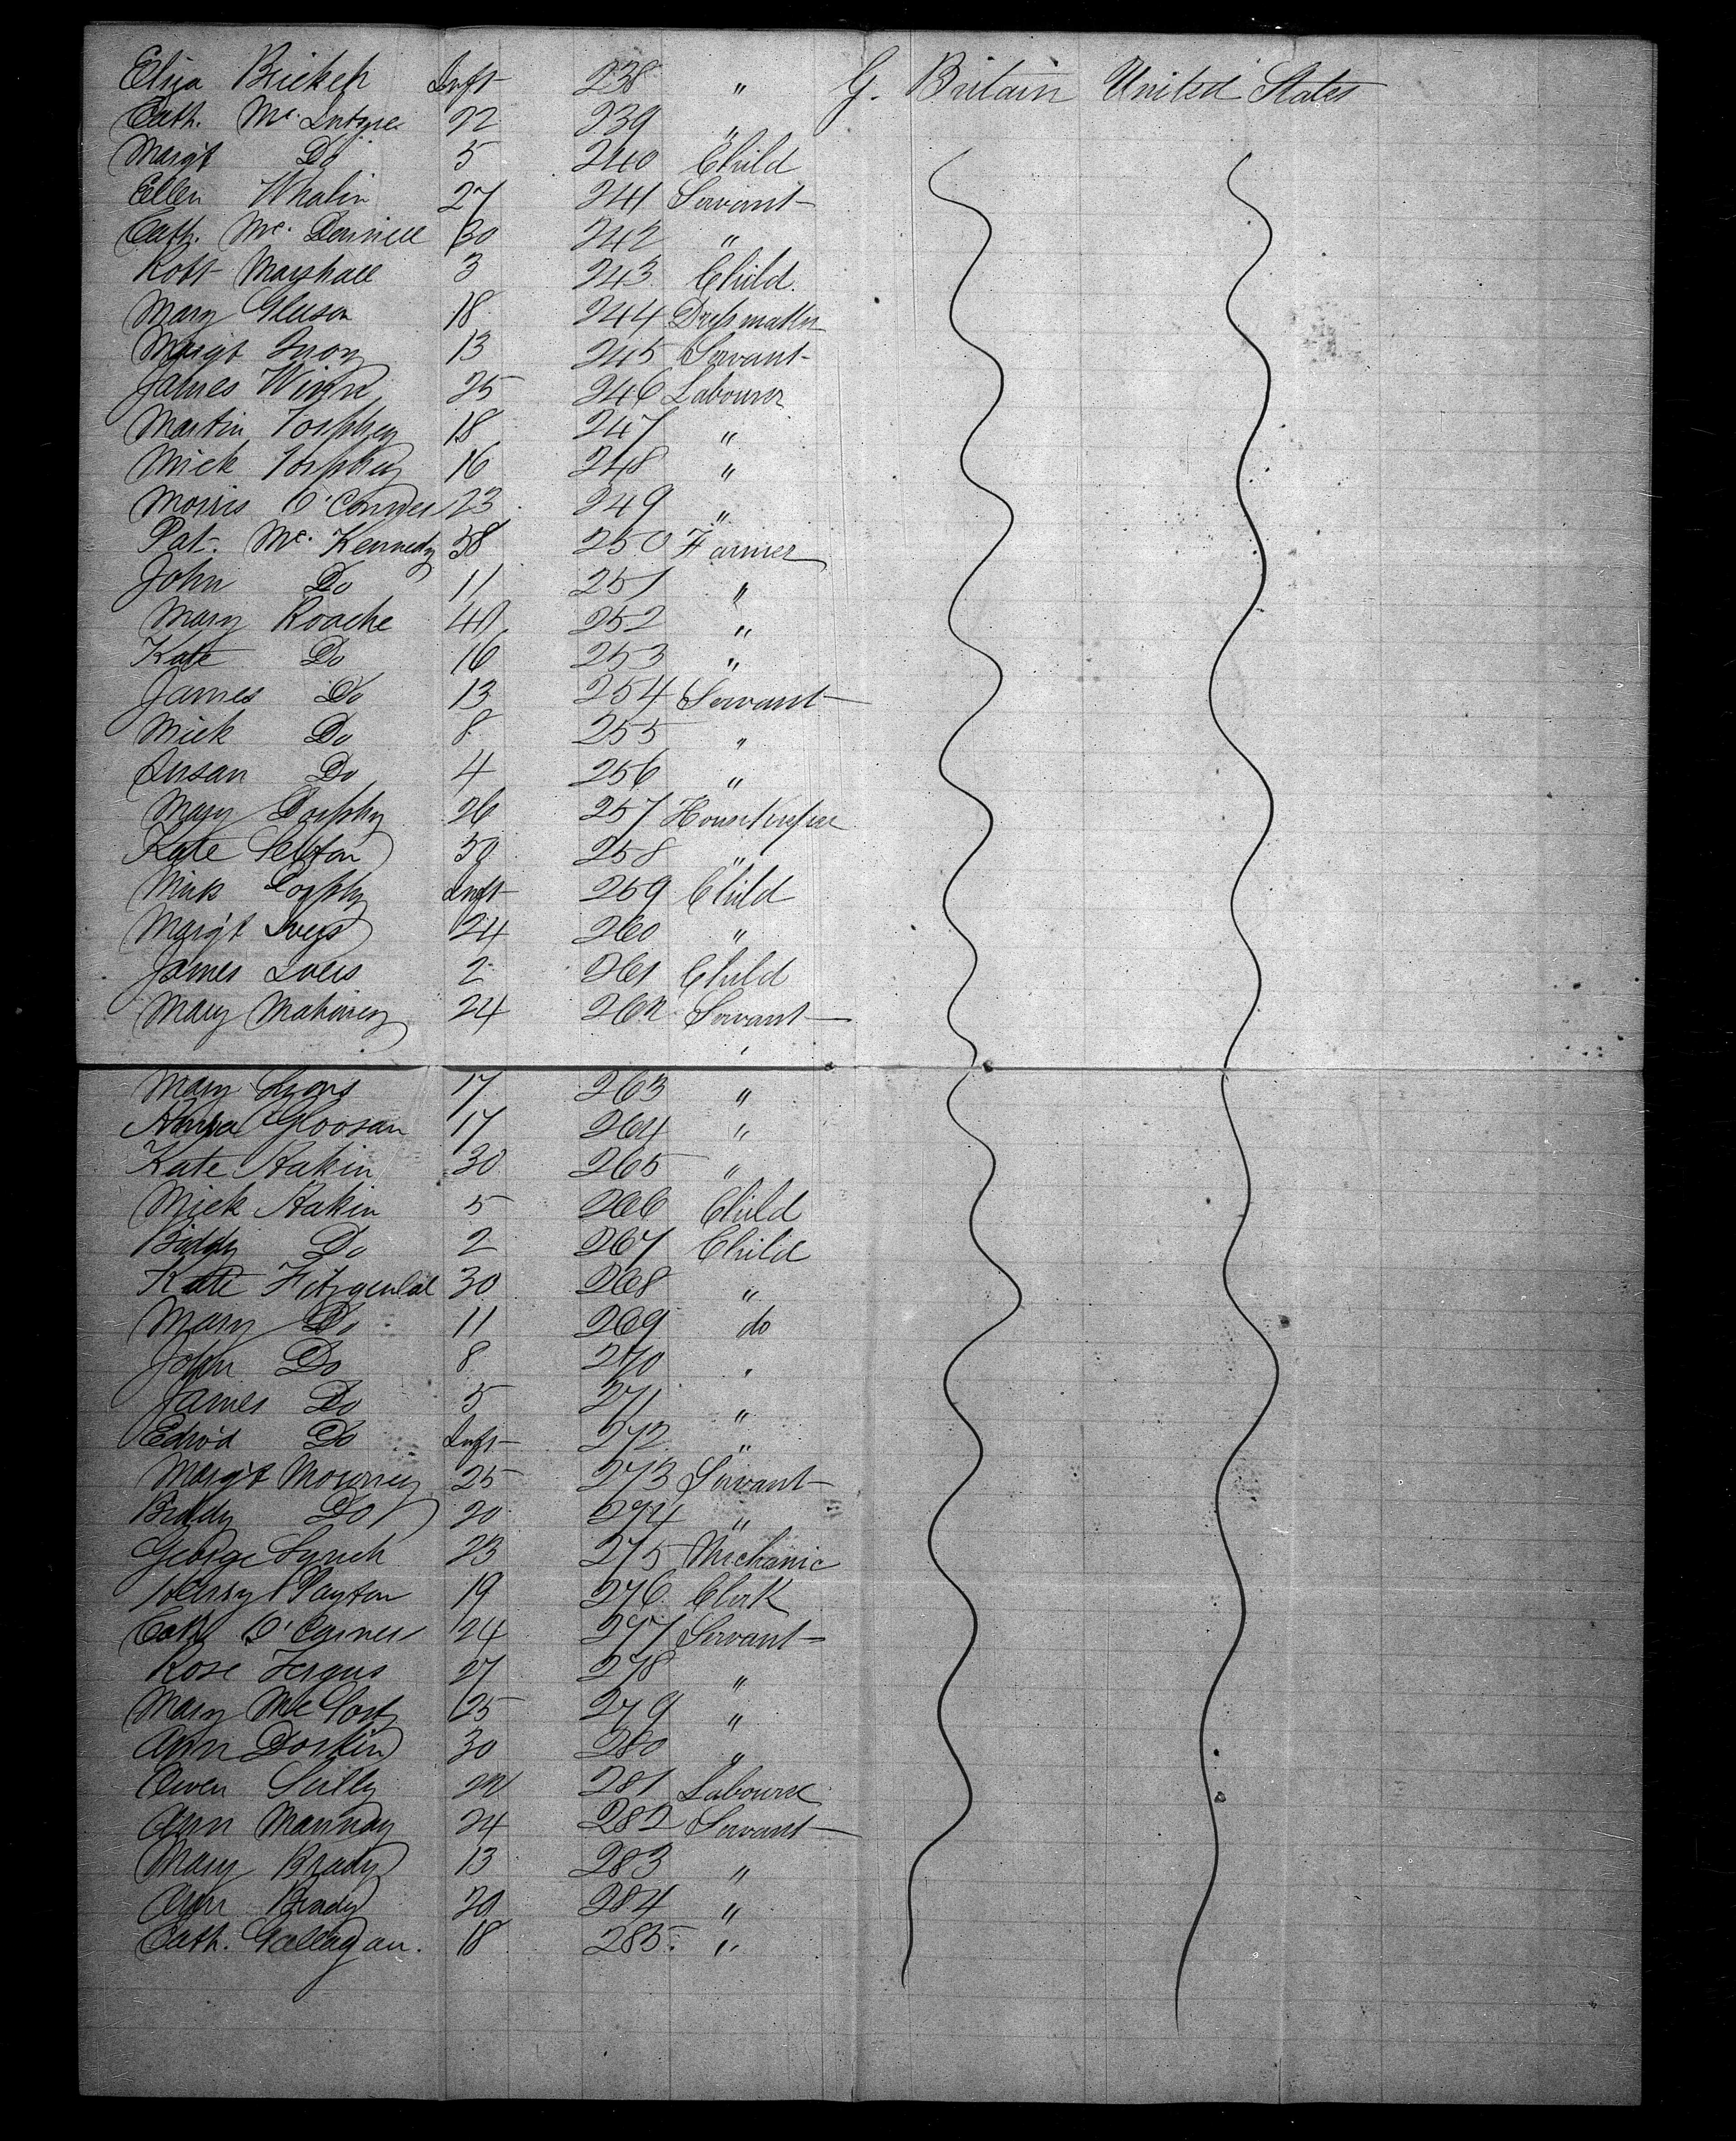 Eliza Bricket Inft 238 " G. Britain United States
Cath. Mc. Intyre 22 239 "
Margt Do 5 240 Child
Ellen Whalin 27 241 Servant
Cath. Mc. Donnell 30 242 "
Robt Marshall 3 243 Child
Mary Gleeson 18 244 Dressmaker
Margt 13 245 Servant
James Winn 25 246 Labourer
Martin Torphey 18 247 "
Mick Torphey 16 248 "
Morris O'Conner 23 249 "
Pat. Mc. Kennedy 38 250 Farmer
John Do 11 251 "
Mary Roache 40 252 "
Kate Do 16 253 "
James Do 13 254 Servant
Mick Do 8 255 "
Susan Do 4 256 "
Mary Dorphy 26 257 Housekeeper
Kate 30 258 "
Mick Dorphy Inft 259 Child
Margt Ivers 24 260 "
James Ivers 2 261 Child
Mary Mahoney 24 262 Servant
Mary Lyons 17 263 "
17 264 "
Kate Hakin 30 265 "
Mick Hakin 5 266 Child
Biddy Do 2 267 Child
Kate Fitzgerald 30 268 "
Mary Do 11 269 do
John Do 8 270 "
James Do 5 271 "
Edwd Do Inft 272 "
Margt Mowrey 25 273 Servant
Biddy Do 20 274 "
George Lynch 23 275 Mechanic
Henry Playton 19 276 Clerk
Cath O' 24 277 Servant
Rose Fergus 27 278 "
Mary 25 279 "
Ann Doskin 30 280 "
Owen Sully 281 Labourer
Ann Mannay 24 282 Servant
Mary Brady 13 283 "
Ann Brady 20 284 "
Cath. Gallagan. 18 285. "